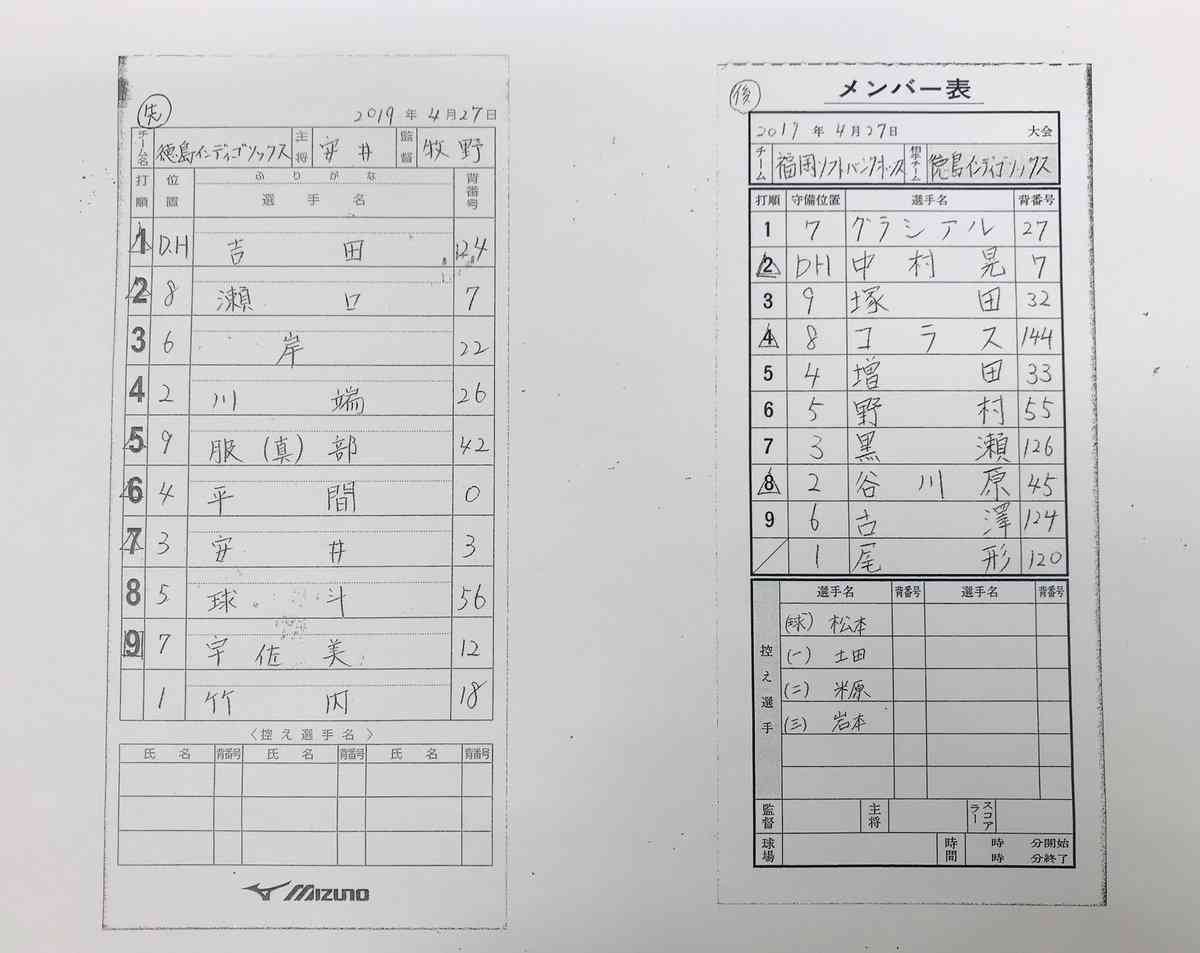 先
2019年4月27日
チーム名 徳島インディゴソックス 主将 安井 監督 牧野
打順 位置 ふりがな 選手名 背番号
1 D.H 吉田 124
2 8 瀬口 7
3 6 岸 22
4 2 川端 26
5 9 服(真)部 42
6 4 平間 0
7 3 安井 3
8 5 球斗 56
9 7 宇佐美 12
1 竹内 18
〈控え選手名〉
氏名 背番号 氏名 背番号 氏名 背番号
MIZUNO
後 メンバー表
2019年4月27日 大会
チーム 福岡ソフトバンクホークス 相手チーム 徳島インディゴソックス
打順 守備位置 選手名 背番号
1 7 グラシアル 27
2 DH 中村晃 7
3 9 塚田 32
4 8 コラス 144
5 4 増田 33
6 5 野村 55
7 3 黒瀬 126
8 2 谷川原 45
9 6 古澤 124
/ 1 尾形 120
控え選手 選手名 背番号 選手名 背番号
(球) 松本
(一) 土田
(二) 米原
(三) 岩本
監督 主将 スコアラー
球場 時間 時 分開始
時 分終了